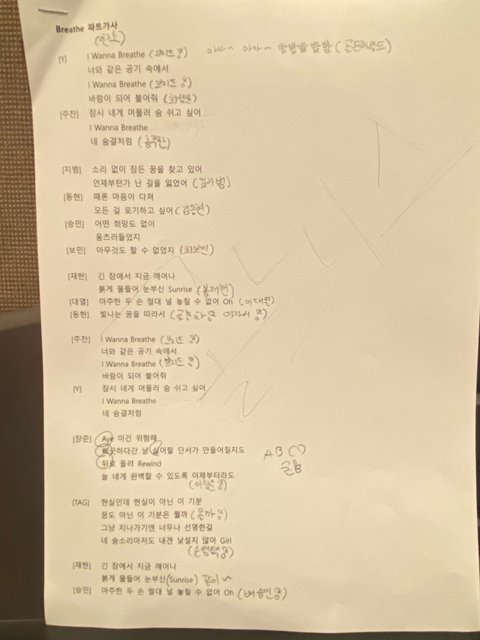 Breathe 파트가사
[Y] I Wanna Breathe (브리드 콩)
너와 같은 공기 속에서
I Wanna Breathe (브리드 콩)
바람이 되어 불어줘
[주찬] 잠시 네게 머물러 숨 쉬고 싶어
I Wanna Breathe
네 숨결처럼 (홍주찬)
[지범] 소리 없이 잠든 꿈을 찾고 있어
언제부턴가 난 길을 잃었어
[동현] 때론 마음이 다쳐
모든 걸 포기하고 싶어 (김동현)
[승민] 어떤 희망도 없이
움츠러들었지
[보민] 아무것도 할 수 없었지 (최보민)
[재현] 긴 잠에서 지금 깨어나
붉게 물들어 눈부신 Sunrise (봉재현)
[대열] 마주한 두 손 절대 널 놓칠 수 없어 Oh (이대열)
[동현] 빛나는 꿈을 따라서
[주찬] I Wanna Breathe (브리드 콩)
너와 같은 공기 속에서
I Wanna Breathe (브리드 콩)
바람이 되어 불어줘
[Y] 잠시 네게 머물러 숨 쉬고 싶어
I Wanna Breathe
네 숨결처럼
[장준] Aye 이건 위험해
삐끗하다간 날 싫어할 단서가 만들어질지도
뒤로 돌려 Rewind
늘 네게 완벽할 수 있도록 이제부터라도
(이장준)
[TAG] 현실인데 현실이 아닌 이 기분
꿈도 아닌 이 기분은 뭘까 (뭘까)
그냥 지나가기엔 너무나 선명한걸
네 숨소리마저도 내겐 낯설지 않아 Girl
(손영택)
[재현] 긴 잠에서 지금 깨어나
붉게 물들어 눈부신 (Sunrise) 같이~
[승민] 마주한 두 손 절대 널 놓칠 수 없어 Oh (배승민)